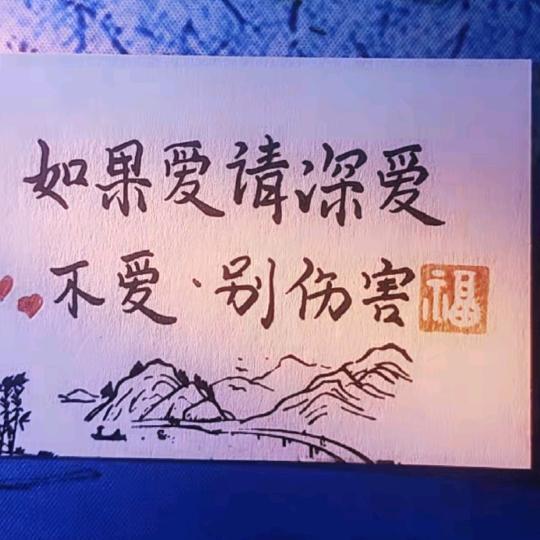 如果爱请深爱
不爱·别伤害 福